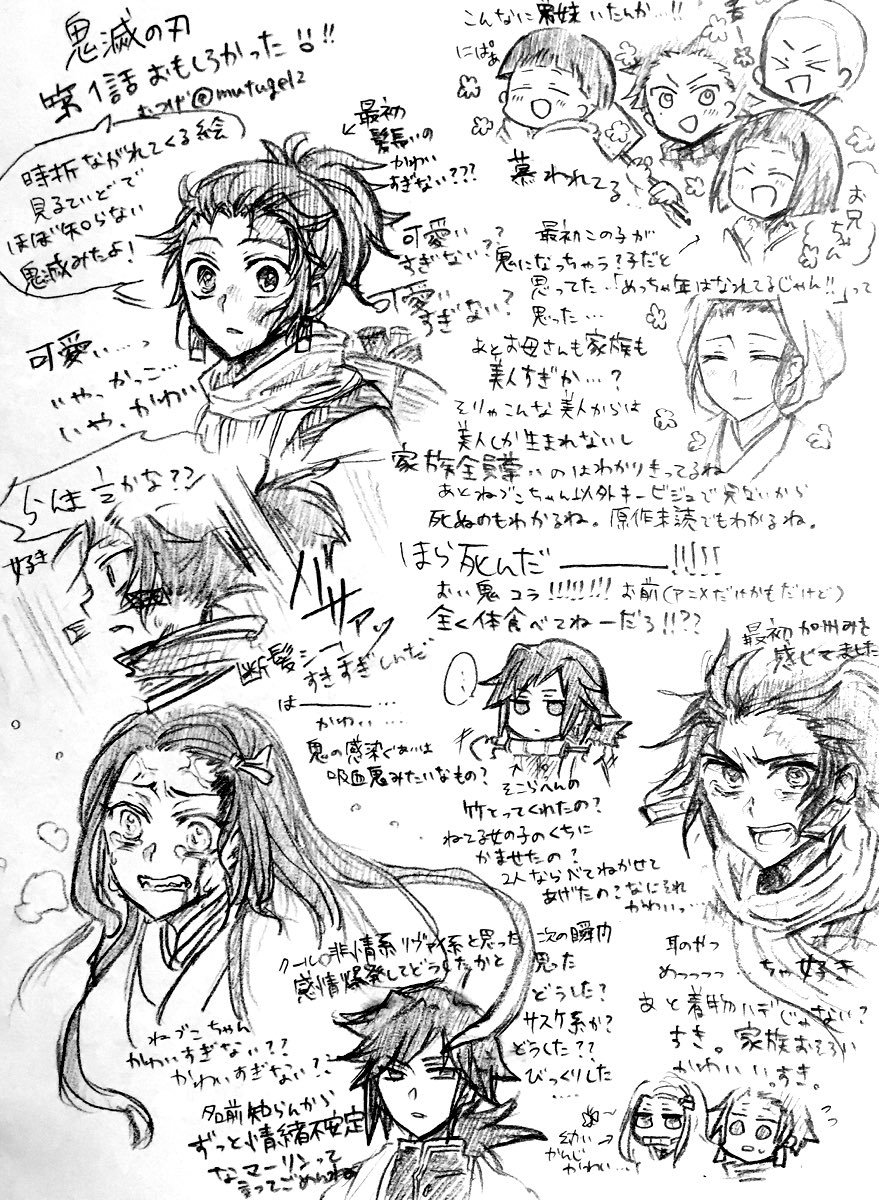 鬼滅の刃
第1話おもしろかった!!!!
むつげ@mutugel2
時折ながれてくる絵
見るていどで
ほぼ知らない
鬼滅みたよ!
↙最初
髪長いの
かわい
すぎない???
可愛い
すぎない??
可愛い
すぎない?
可愛い…っ
いやっかっこ…
いや、かわい
らんま½かな??
好き
バサァッ
断髪シーン
すきすぎしんだ
こんなに弟妹いたんか…!!
にぱぁ
慕われてる…
お兄
ちゃん
最初この子が
鬼になっちゃう?子だと
思ってた…「めっちゃ年はなれてるじゃん!!」って
思った…
あとお母さんも家族も
美人すぎか…?
そりゃこんな美人からは
美人しか生まれないし
家族全員尊いのはわかりきってるね
あとねずこちゃん以外キービジュで見ないから
死ぬのもわかるね。原作未読でもわかるね。
ほら死んだ―――!!!!!
おい鬼コラ!!!!!!! お前(アニメだけかもだけど)
全く体食べてねーだろ!!??
最初加州みを
感じてました
は―――…
かわい…
鬼の感染ぐあいは
吸血鬼みたいなもの?
…
そこらへんの
竹とってくれたの?
ねてる女の子のくちに
かませたの?
2人ならべてねかせて
あげたの?なにそれ
かわいっ…
クール非情系リヴァイ系と思った
感情爆発してどうしたかと
次の瞬間
思った
どうした?
サスケ系か?
どうした??
びっくりした
……
耳のやつ
めっっっっ…ちゃ好き
あと着物ハデじゃない?
すき。家族おそろい
かわいい。すき。
ねずこちゃん
かわいすぎない??
かわいすぎない??
名前知らんから
ずっと情緒不安定
なマーリンって
言ってごめんね
幼い
かんじ
かわい…